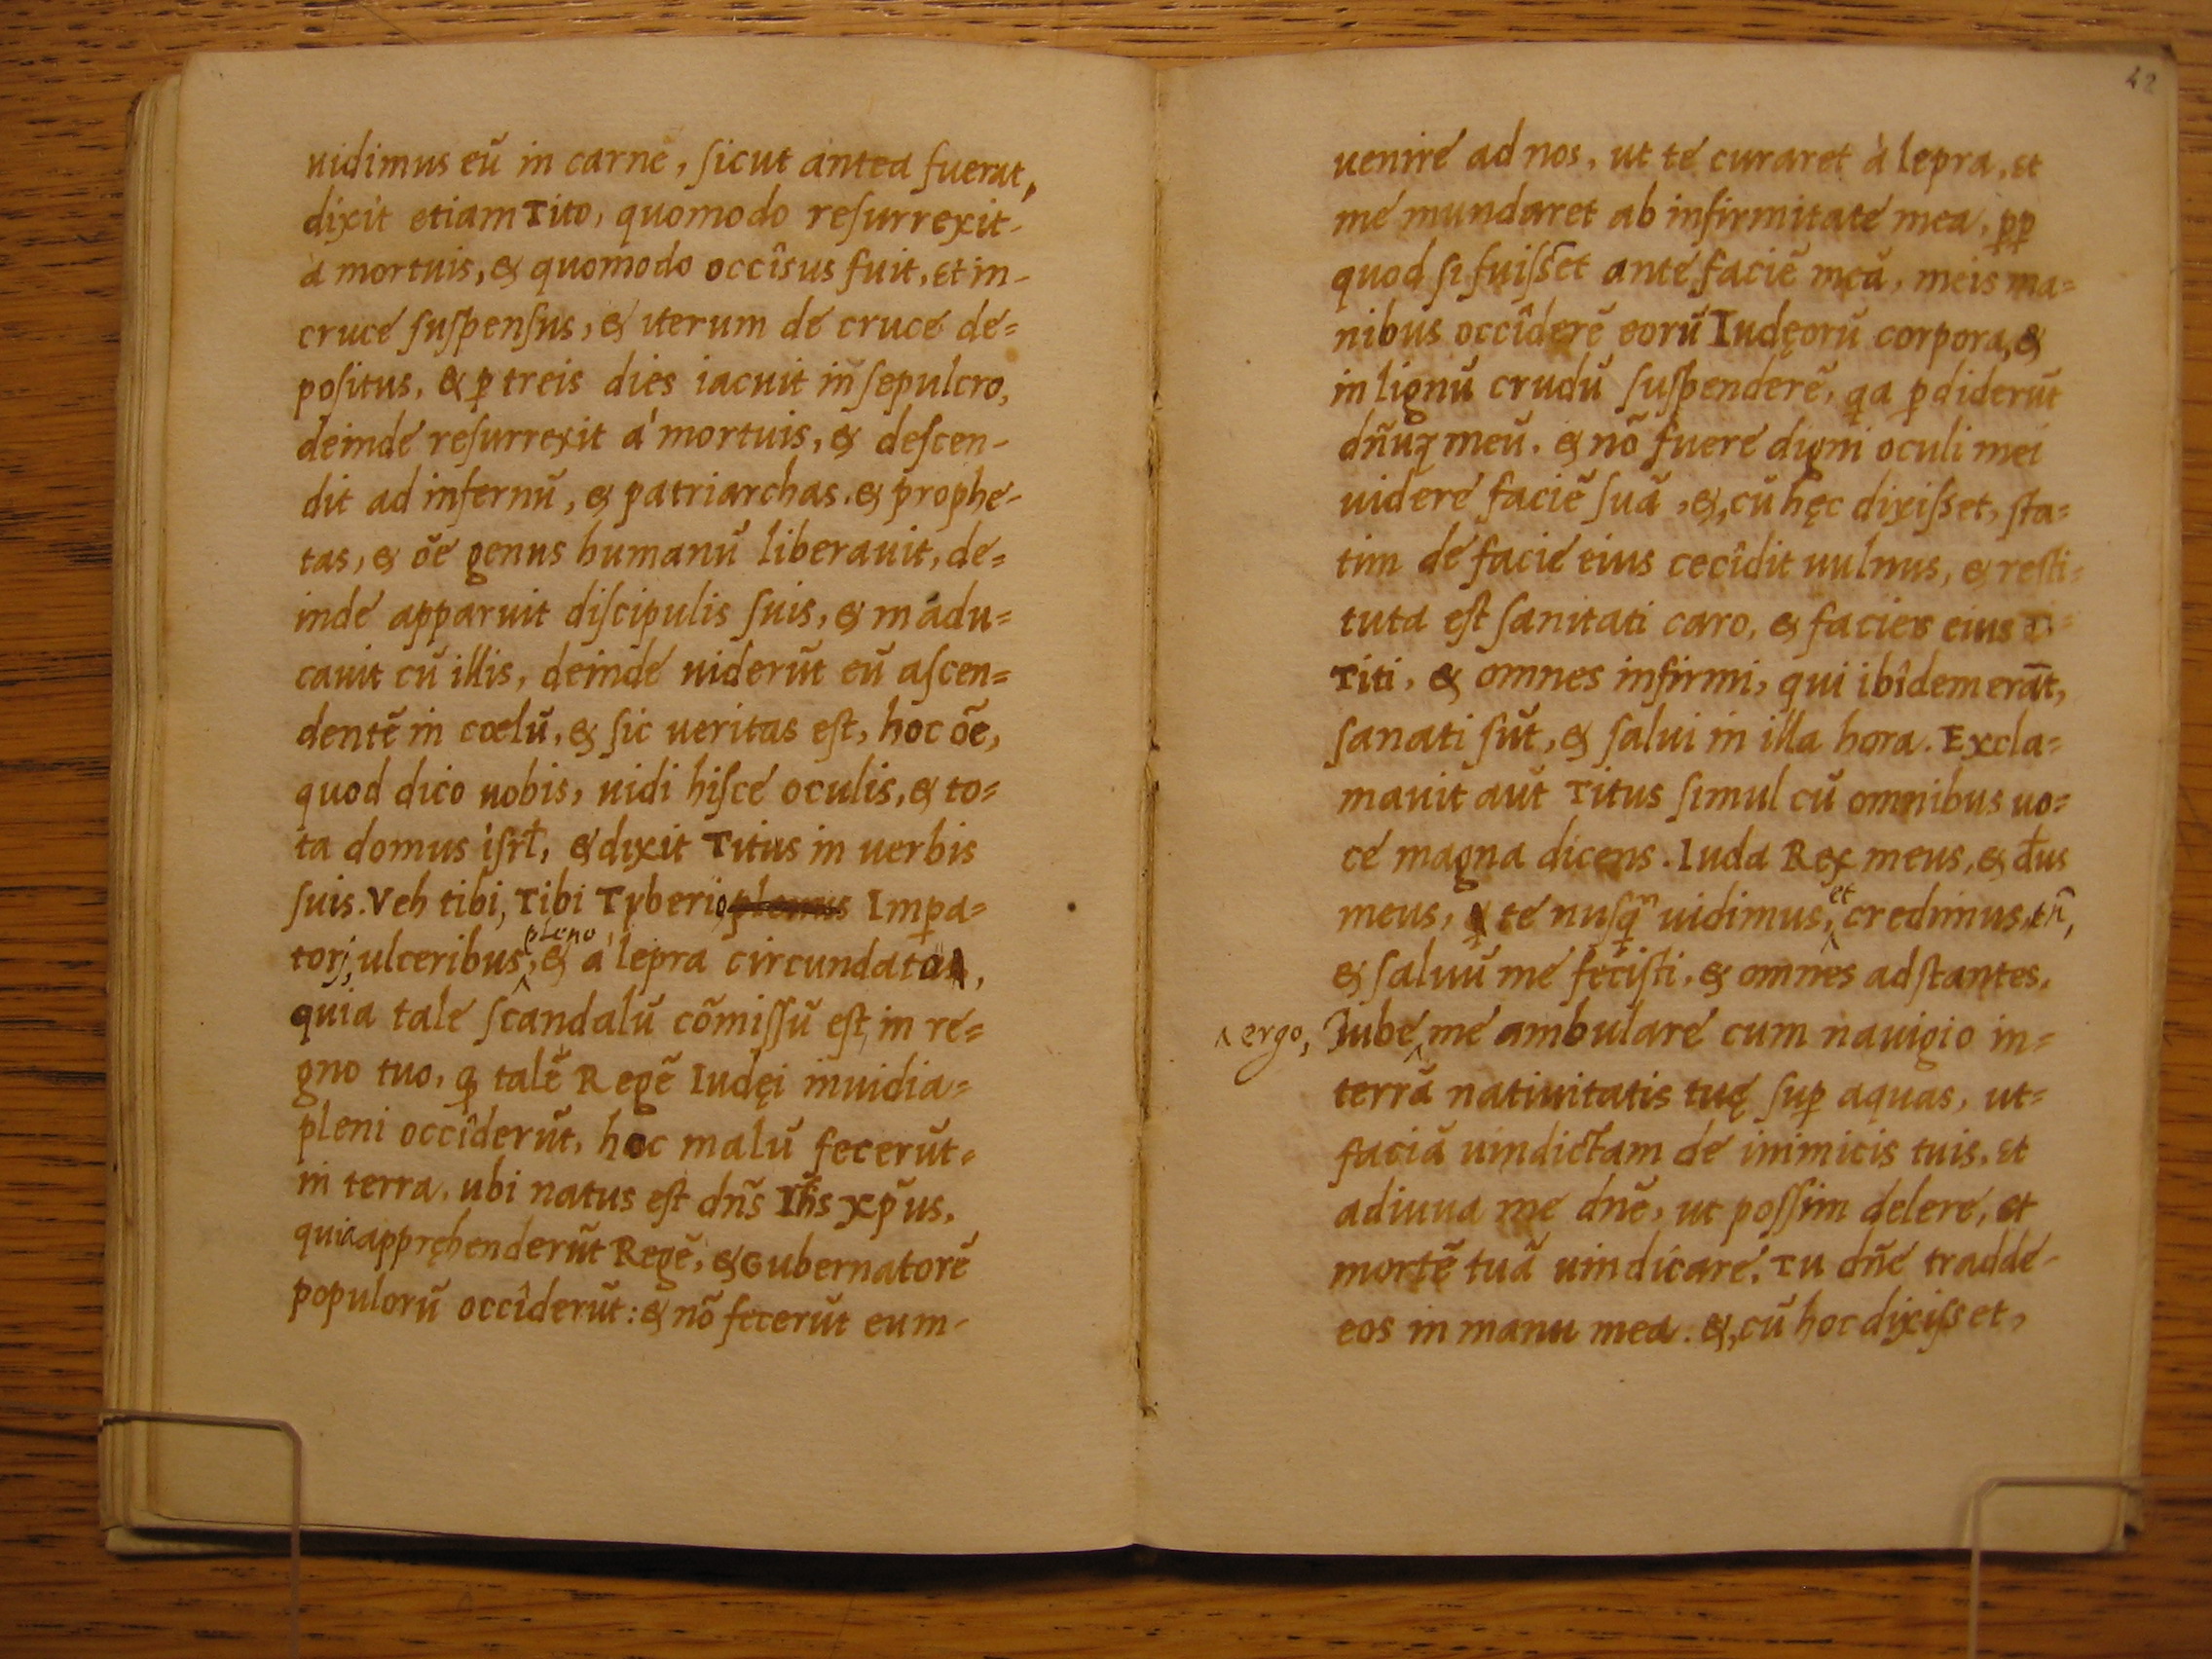 uidimus eũ in carne, ſicut antea fuerat,
dixit etiam Tito, quomodo reſurrexit-
à mortuis, & quomodo occîsus fuit, et in-
cruce ſuſpenſus, & iterum de cruce de=
poſitus, & ꝑ treis dies iacuit in ſepulcro,
deinde reſurrexit a' mortuis, & deſcen-
dit ad infernũ, & patriarchas, & prophe-
tas, & õe genus humanũ liberauit, de=
inde apparuit diſcipulis ſuis, & mãdu=
cauit cũ illis, deinde uiderũt eũ aſcen=
dentẽ in cœlũ, & ſic ueritas eſt, hoc õe,
quod dico uobis, uidi hiſce oculis, & to=
ta domus iſrł, & dixit Titus in uerbis
ſuis. Veh tibi, Tibi Tyberio Imꝑa=
torj, ulceribus, pleno & a' lepra circundato,
quia tale ſcandalũ cõmiſſũ eſt, in re=
gno tuo, ꝙ talẽ Regẽ Iudęi inuidia=
pleni occîderũt, hoc malũ fecerũt=
in terra, ubi natus eſt dñs Ihs xp̃us,
quia appręhenderũt Regẽ, & Gubernatorẽ
populorũ occîderũt: & nõ fecerũt eum-
42
uenire ad nos, ut te curaret à lepra, et
me mundaret ab infirmitate mea, ꝓꝑ
quod ſi fuiſſet ante faciẽ meã, meis ma=
nibus occîderẽ eorũ Iudęorũ corpora, &
in lignũ crudũ ſuſpenderẽ, qa ꝑdiderũt
dñuꝫ meũ. & nõ fuere digni oculi mei
uidere faciẽ ſuã, &, cũ hęc dixiſſet, ſta=
tim de facie eius cecîdit uulnus, & reſti=
tuta eſt ſanitati caro, & facies eius
Titi, & omnes infirmi, qui ibîdem erãt,
ſanati ſũt, & ſalui in illa hora. Excla=
mauit aũt Titus ſimul cũ omnibus uo=
ce magna dicens. Iuda Rex meus, & đus
meus, te nuſꝗᵐ uidimus, et credimus, tñ,
& ſaluũ me feciſti, & omnes adſtantes.
Iube ergo, me ambulare cum nauigio in=
terrã natiuitatis tuę ſuꝑ aquas, ut=
faciã uindictam de inimicis tuis, et
adiuua me dñe, ut poſſim delere, et
mortẽ tuã uindicare. Tu dñe tradde-
eos in manu mea. &, cũ hoc dixiſſet,